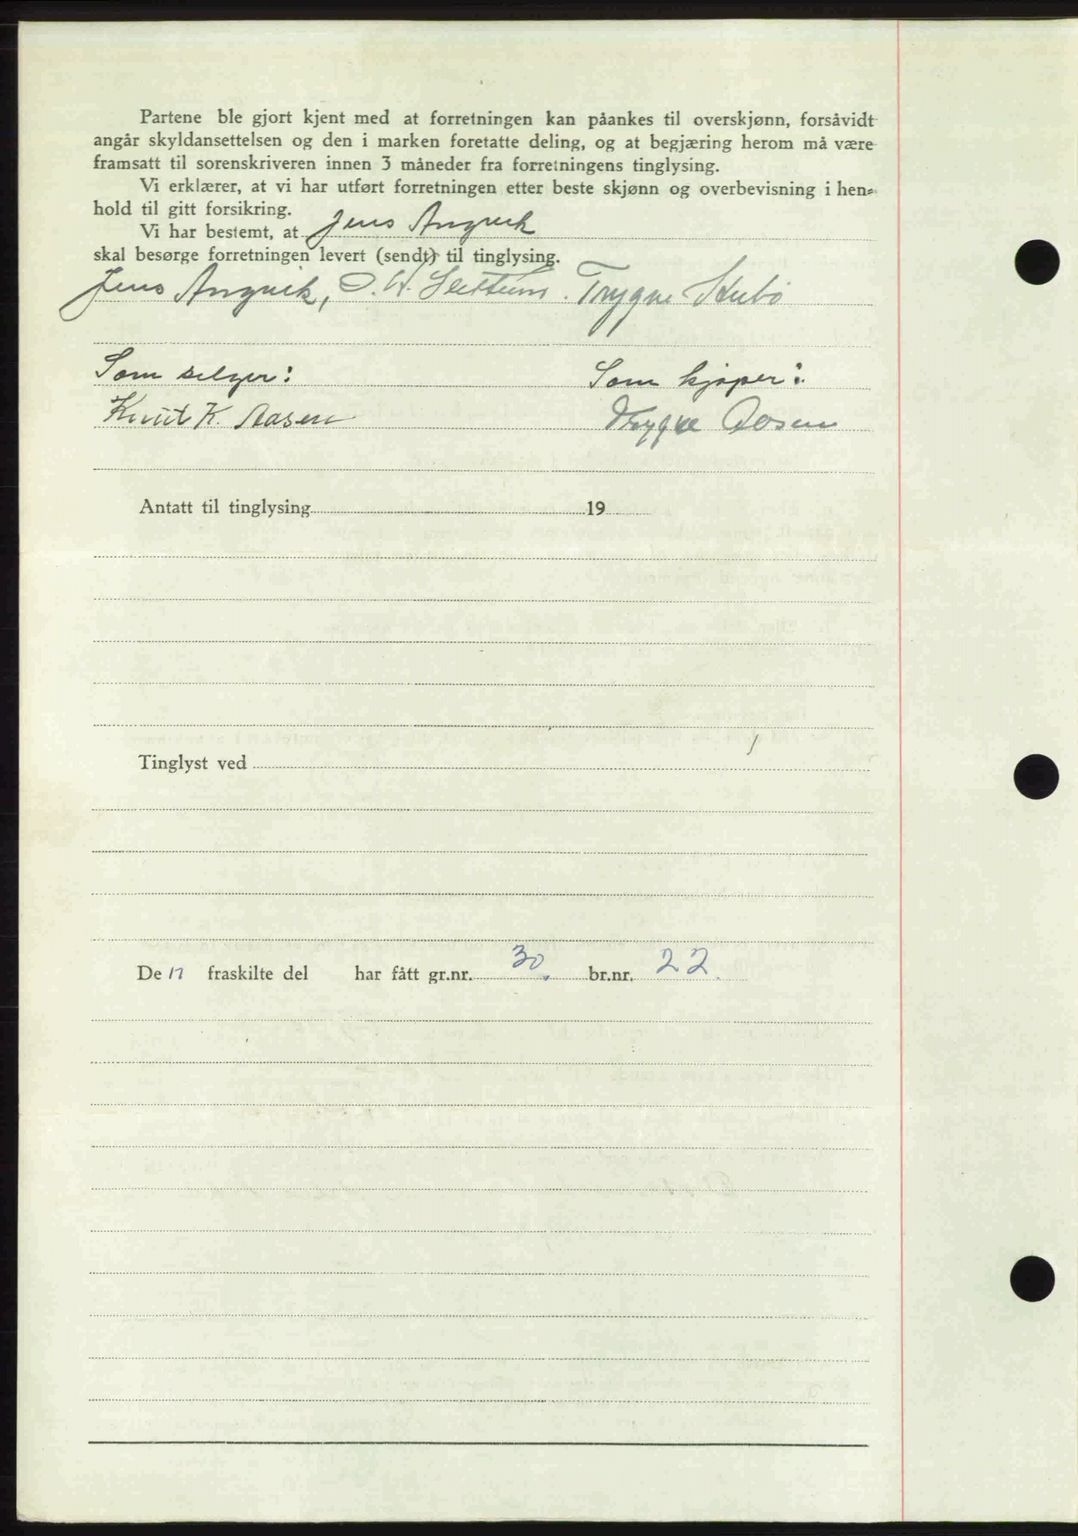 Partene ble gjort kjent med at forretningen kan påankes til overskjønn, forsåvidt
angår skyldansettelsen og den i marken foretatte deling, og at begjæring herom må være
framsatt til sorenskriveren innen 3 måneder fra forretningens tinglysing.
Vi erklærer, at vi har utført forretningen etter beste skjønn og overbevisning i hen-
hold til gitt forsikring.
Vi har bestemt, at Jens Angvik
skal besørge forretningen levert (sendt) til tinglysing.
Jens Angvik, Trygve Stubø
Som selger: Som kjøper:
Knut K. Aasen Trygve Aasen
Antatt til tinglysing 19
Tinglyst ved
De n fraskilte del har fått gr.nr. 30. br.nr. 22.